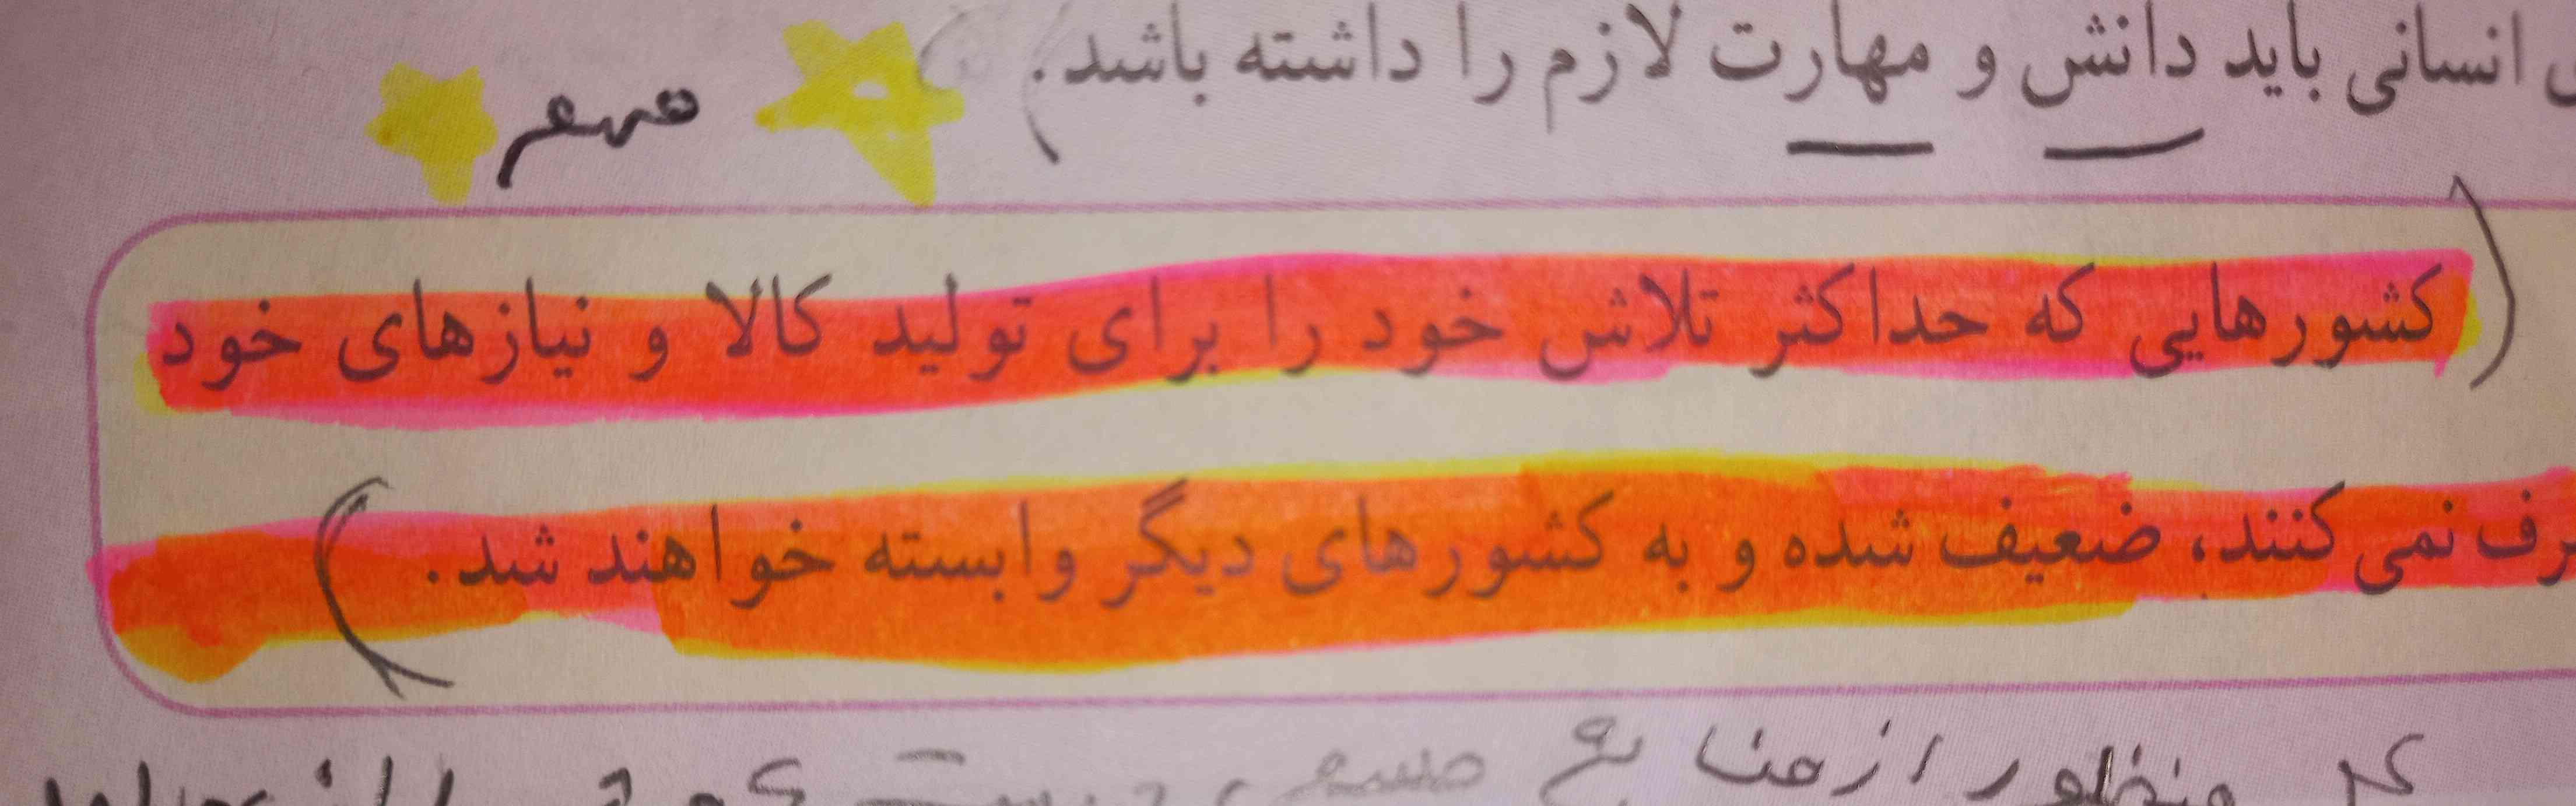 انسانی باید دانش و مهارت لازم را داشته باشد.
مهم
کشورهایی که حداکثر تلاش خود را برای تولید کالا و نیازهای خود
نمی‌کنند، ضعیف شده و به کشورهای دیگر وابسته خواهند شد.
منظور از منابع